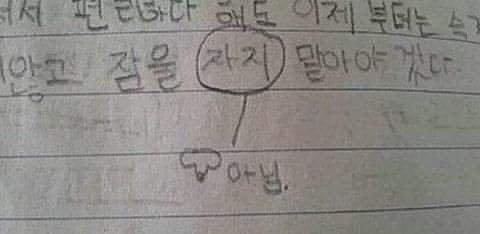 편리하다 해도 이제 부터는
안고 잠을 자지 말아야 겠다.
아님.